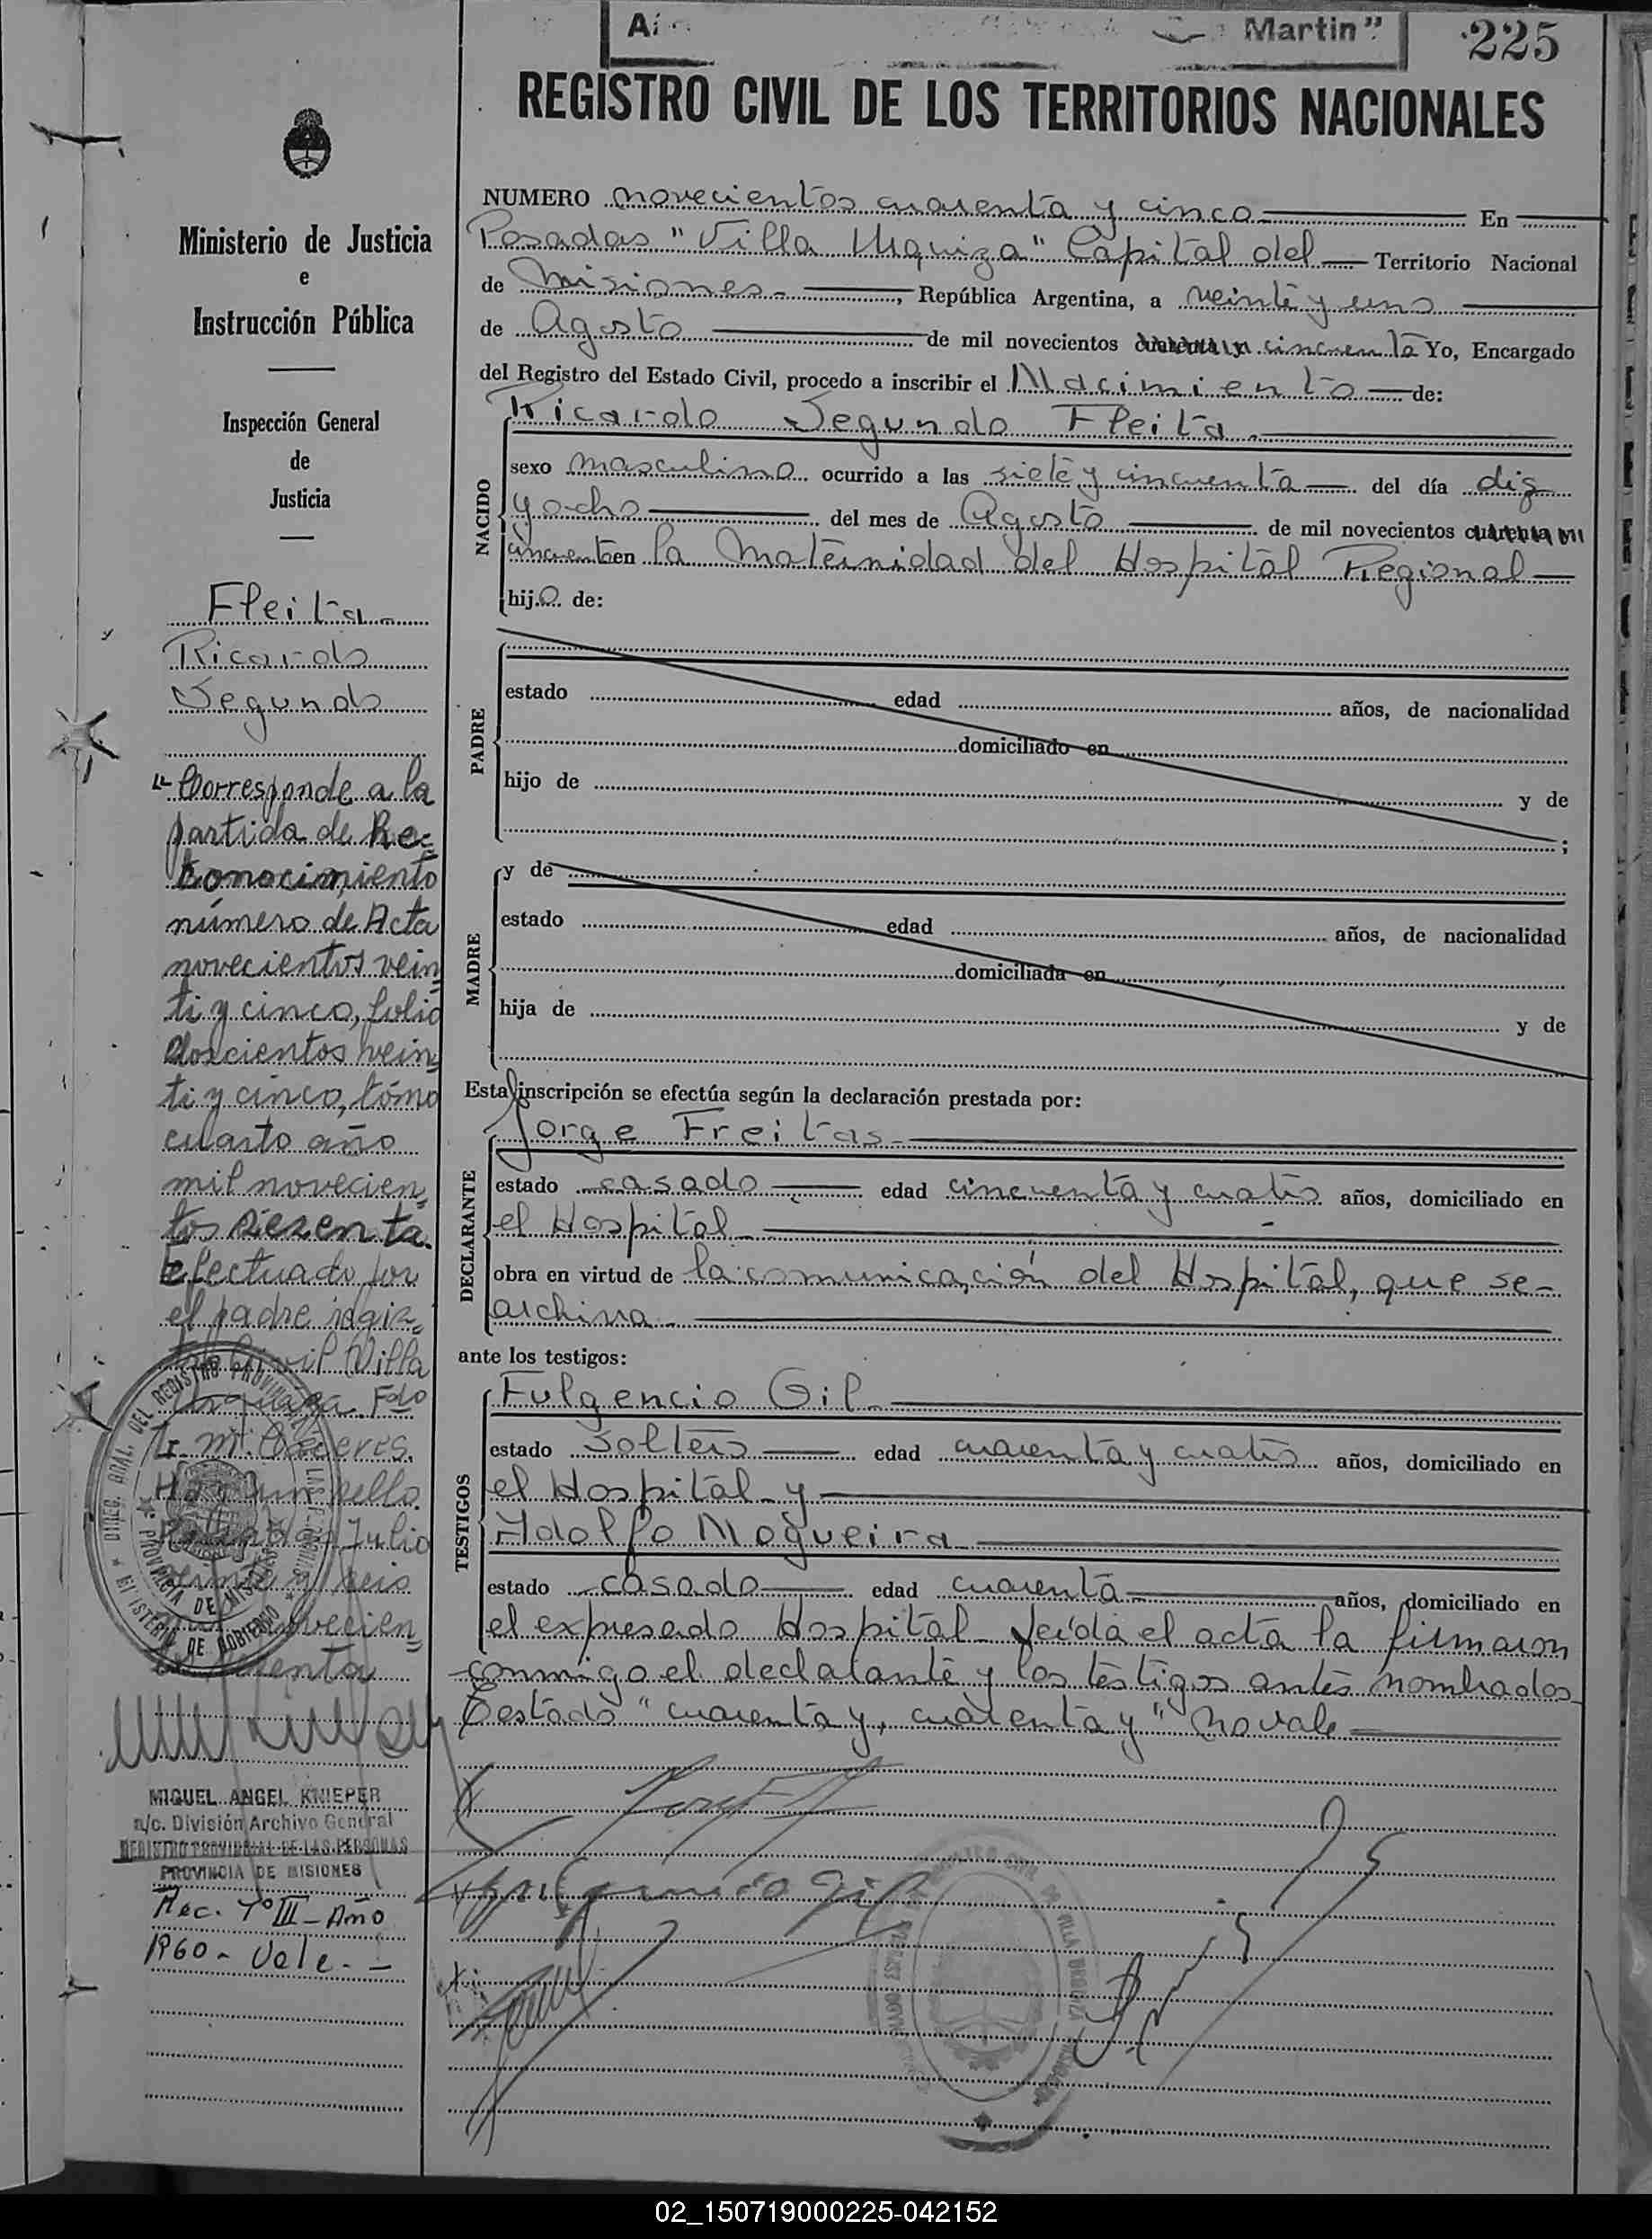 Martin"
225
REGISTRO CIVIL DE LOS TERRITORIOS NACIONALES
Ministerio de Justicia
e
Instrucción Pública
Inspección General
de
Justicia
Fleita
Ricardo
Segundo
"Corresponde a la
partida de Re=
conocimiento
número de Acta
novecientos vein
ti y cinco, folio
doscientos vein
ti y cinco, tómo
cuarto año
mil novecien=
tos sesenta.
Efectuado por
el padre regis=
Civil Villa
Urquiza. Fdo
Hay un sello.
Julio
y seis
novecien=
MIGUEL ANGEL KNIEPER
a/c. División Archivo General
REGISTRO PROVINCIAL DE LAS PERSONAS
PROVINCIA DE MISIONES
Rec. Tº III - Año
1960 - Vale. -
NUMERO novecientos cuarenta y cinco En
Posadas "Villa Urquiza" Capital del Territorio Nacional
de Misiones, República Argentina, a veinte y uno
de Agosto de mil novecientos cuarenta y cincuenta Yo, Encargado
del Registro del Estado Civil, procedo a inscribir el Nacimiento de:
Ricardo Segundo Fleita
NACIDO
sexo masculino ocurrido a las siete y cincuenta del día diez
y ocho del mes de Agosto de mil novecientos cuarenta y
cincuenta en la Maternidad del Hospital Regional
hijo de:
PADRE
estado edad años, de nacionalidad
domiciliado en
hijo de y de
;
MADRE
y de
estado edad años, de nacionalidad
domiciliada en
hija de y de
Esta inscripción se efectúa según la declaración prestada por:
DECLARANTE
Jorge Freitas
estado casado edad cincuenta y cuatro años, domiciliado en
el Hospital
obra en virtud de la comunicación del Hospital, que se
archiva
ante los testigos:
TESTIGOS
Fulgencio Gil
estado soltero edad cuarenta y cuatro años, domiciliado en
el Hospital y
Adolfo Nogueira
estado casado edad cuarenta años, domiciliado en
el expresado Hospital. Leída el acta la firmaron
conmigo el declarante y los testigos antes nombrados
Testado "cuarenta y, cuarenta y" no vale
02_150719000225-042152